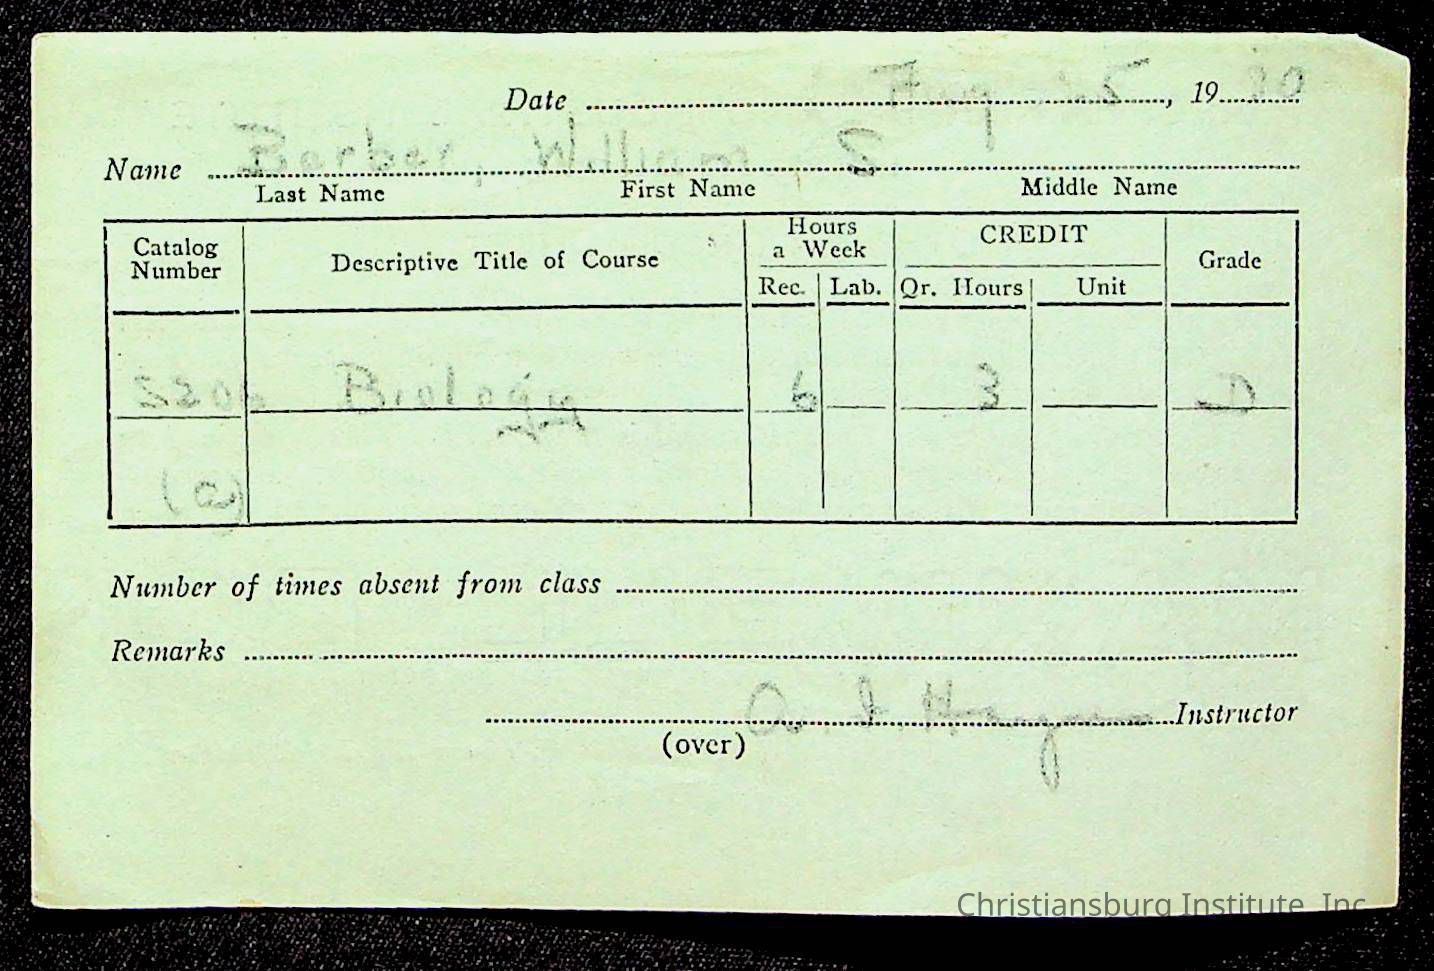 Date ........ 15, 19
Name Barber, William, S
Last Name First Name Middle Name
Catalog Number Descriptive Title of Course Hours a Week CREDIT Grade
Rec. Lab. Qr. Hours Unit
Biology 6 3 D
(a)
Number of times absent from class
Remarks
Instructor
(over)
Christiansburg Institute, Inc